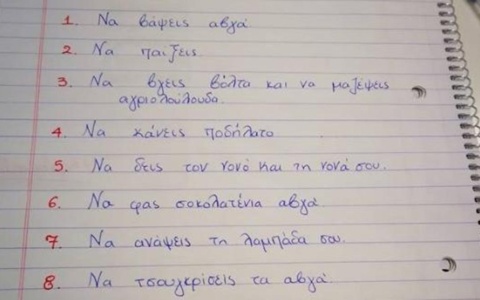 1. Να βάψεις αβγά
2. Να παίξεις
3. Να βγεις βόλτα και να μαζέψεις
αγριολούλουδα.
4. Να κάνεις ποδήλατο
5. Να δεις τον νονό και τη νονά σου.
6. Να φας σοκολατένια αβγά.
7. Να ανάψεις τη λαμπάδα σου.
8. Να τσουγκρίσεις τα αβγά.